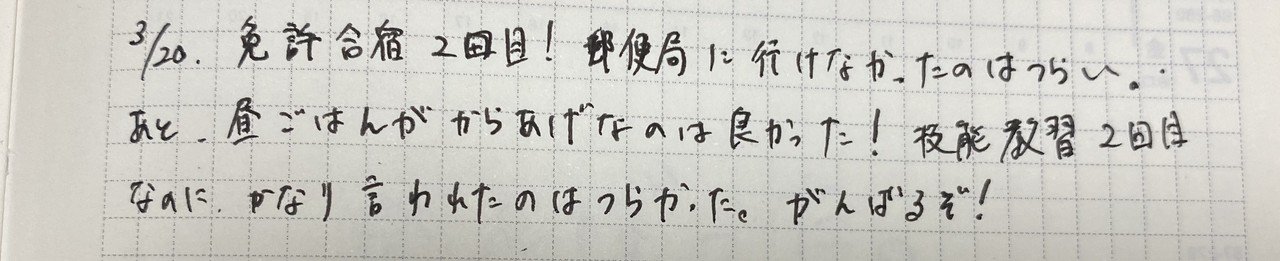 3/20. 免許合宿2回目! 郵便局に行けなかったのはつらい。
あと、昼ごはんがからあげなのは良かった! 技能教習2回目
なのに、かなり言われたのはつらかった。がんばるぞ!